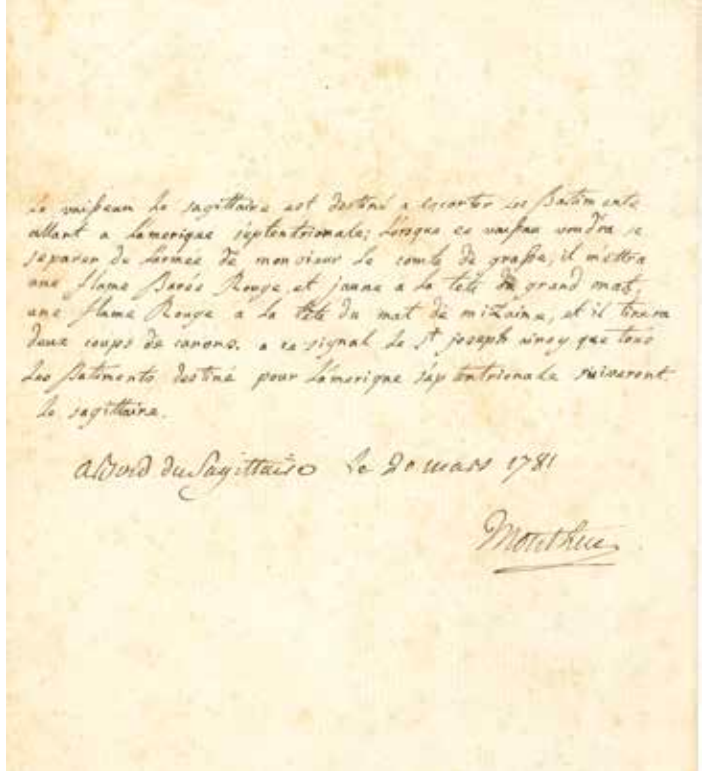 Le vaisseau Le sagittaire est destiné a escorter Les Batiments
allant a Lamerique septentrionale; Lorsque ce vaisseau voudra se
separer de Larmée de monsieur Le comte de grasse, il mettra
une flame Barée Rouge et jaune a La tête du grand mat,
une flame Rouge a La tête du mat de mizaine, et il tirera
deux coups de canons. a ce signal Le St joseph ainsy que tous
Les Batiments destiné pour Lamerique septentrionale suiveront
Le sagittaire.
a Bord du Sagittaire Le 20 mars 1781
Montluc